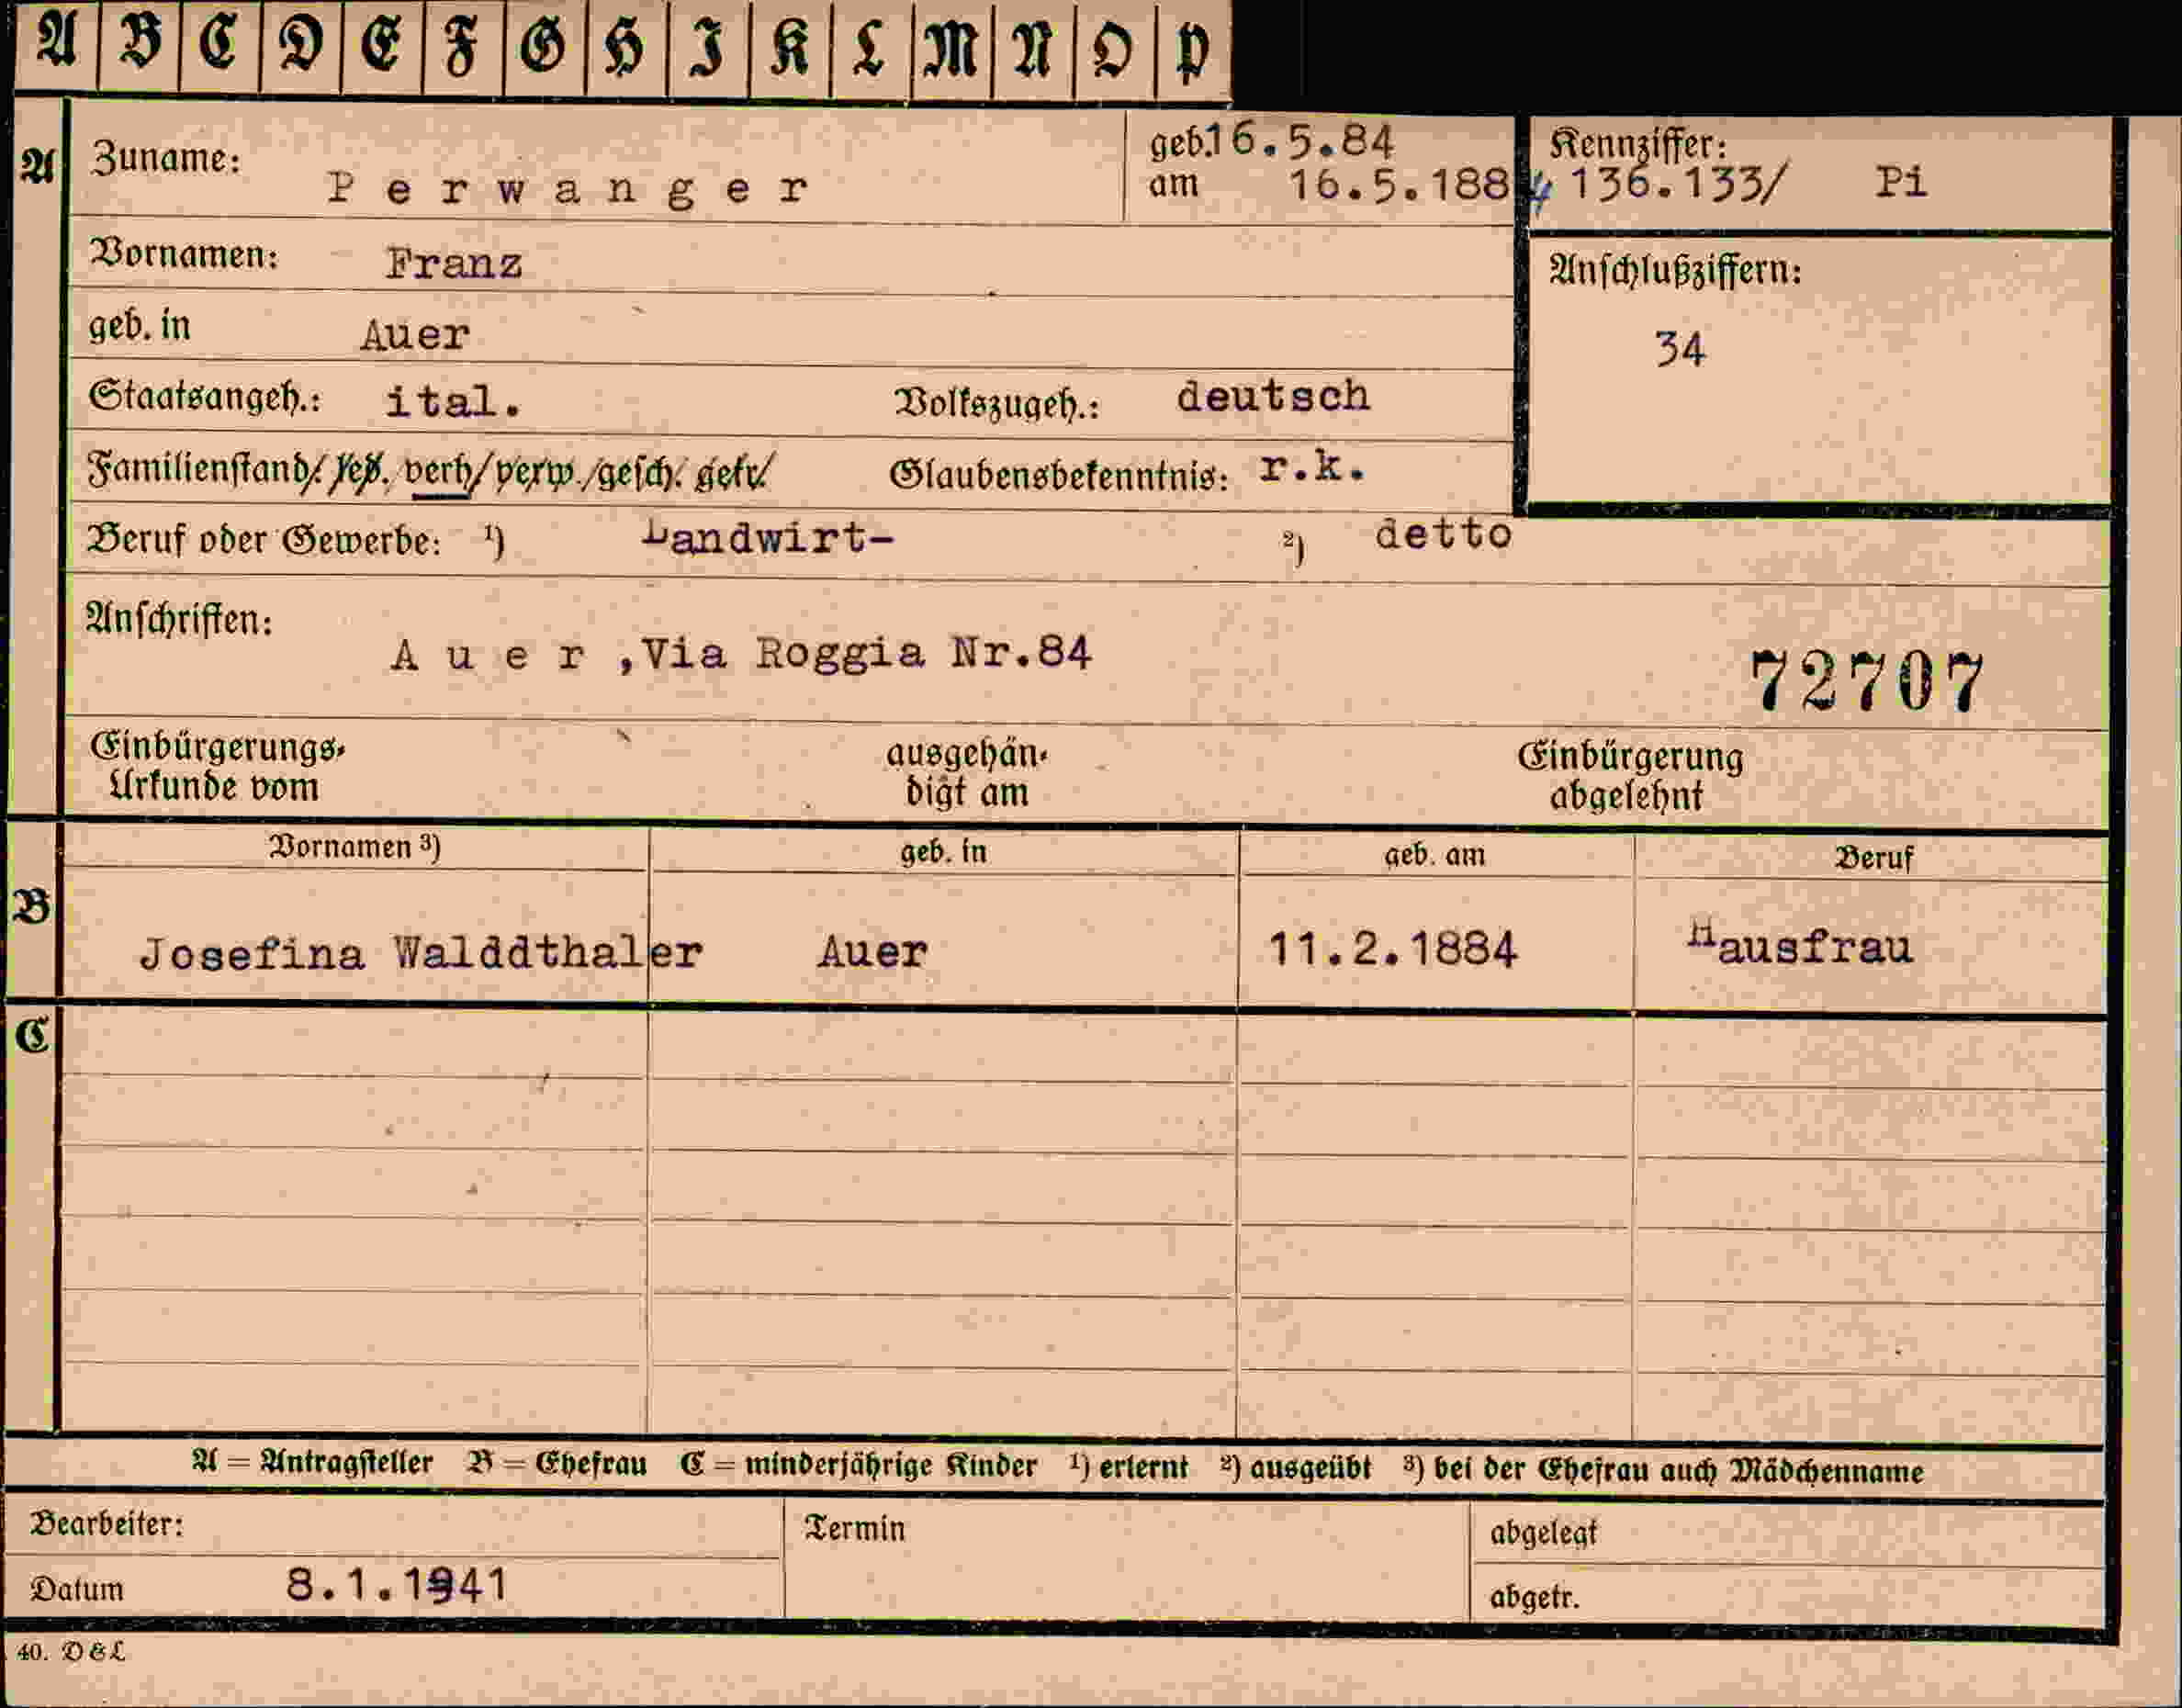 A B C D E F G H I K L M N O P
A
Zuname: Perwanger
geb. 16.5.84
am 16.5.1884
Kennziffer:
136.133/ Pi
Vornamen: Franz
Anschlußziffern:
34
geb. in Auer
Staatsangeh.: ital. Volkszugeh.: deutsch
Familienstand: led. verh. verw. gesch. getr. Glaubensbekenntnis: r.k.
Beruf oder Gewerbe: 1) Landwirt- 2) detto
Anschriften:
Auer, Via Roggia Nr.84
72707
Einbürgerungs-
Urkunde vom
ausgehän-
digt am
Einbürgerung
abgelehnt
B
Vornamen 3) geb. in geb. am Beruf
Josefina Walddthaler Auer 11.2.1884 Hausfrau
C
A = Antragsteller B = Ehefrau C = minderjährige Kinder 1) erlernt 2) ausgeübt 3) bei der Ehefrau auch Mädchenname
Bearbeiter:
Termin
abgelegt
Datum 8.1.1941
abgetr.
40. D & L